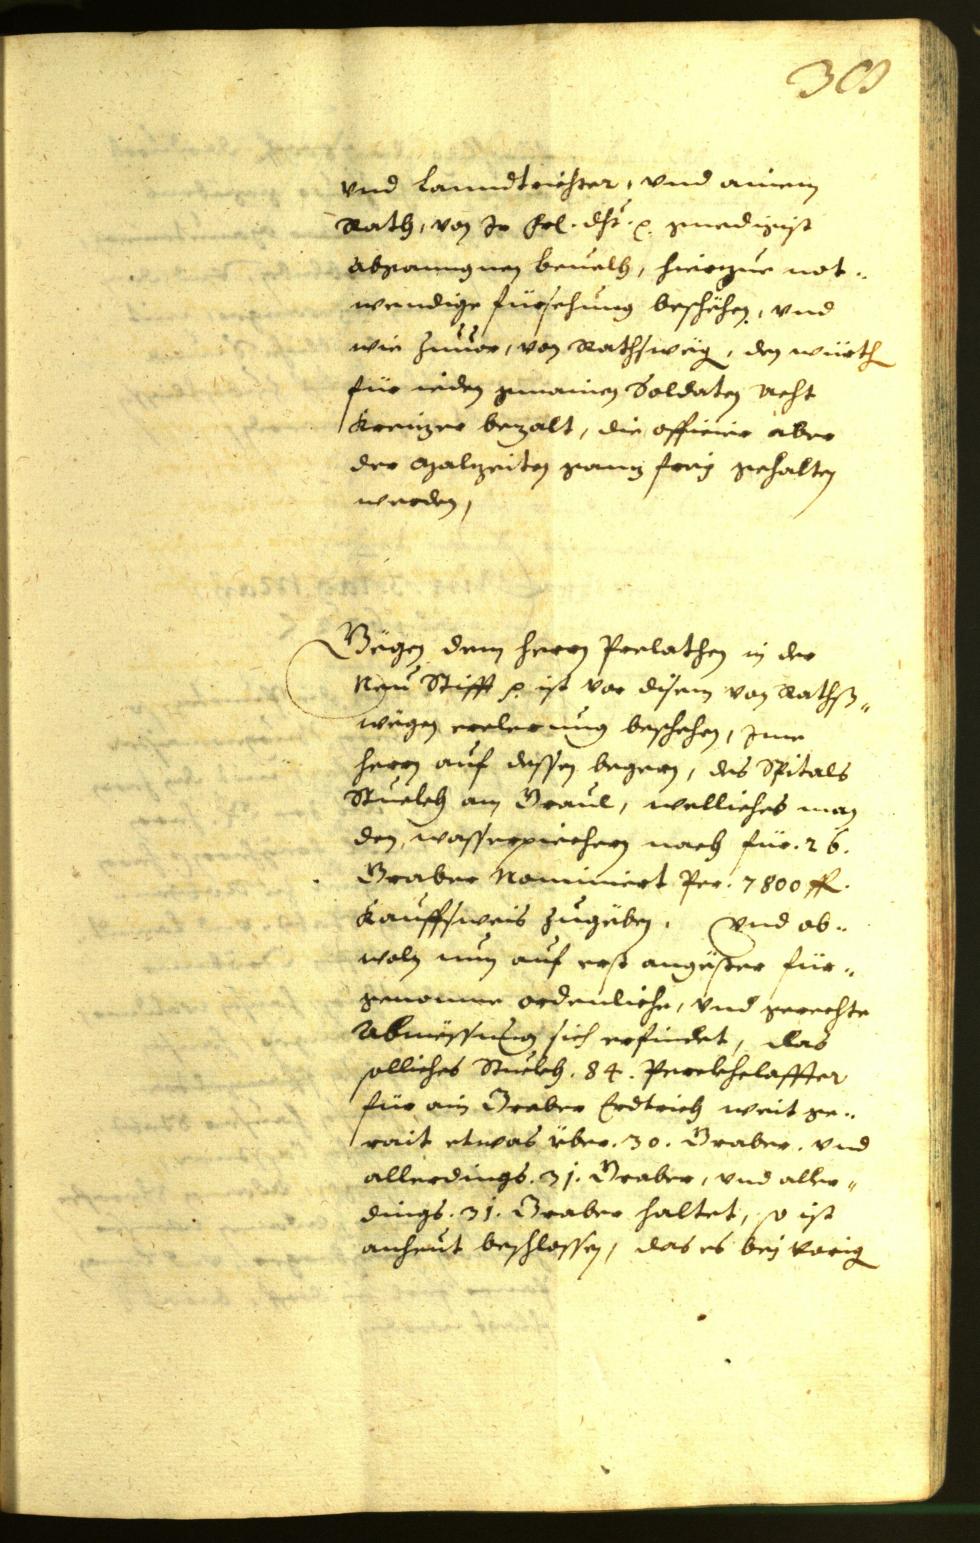 300
vnd Lanndtrichter, vnd ainem
Rath, von Ir frl. dht. p. genedigist
abganngnen beuelh, hierzue not-
wendige fürsehung beschehen, vnd
wie zuuor, von Rathsweg, den würth
für ieden gmainen Soldaten Acht
Kreuzer bezalt, die officier aber
der Malzeiten ganz freÿ gehalten
werden,
Wëgen dem herrn Prelathen in der
Neü Stifft p. ist vor disem von Raths-
wëgen ercleerung beschehen, Ime
herrn auf dessen begern, des Spitals
Stuckh am Graul, welliches man
den wasser nach für. 26.
Graber Nominiert Per. 7800 fl.
Kauffsweis zugëben. Vnd ob-
woln nun auf erst angëster für-
genomne ordenliche, vnd gerechte
Abmëssung sich erfindet, das
solliches Stuckh. 84. Perckhclaffter
für ain Graber Erdtrich weit ge-
rait etwas über. 30. Graber. vnd
allerdings. 31. Graber, vnd aller-
dings. 31. Graber haltet, so ist
anheut beschlossen, das es beÿ vorig